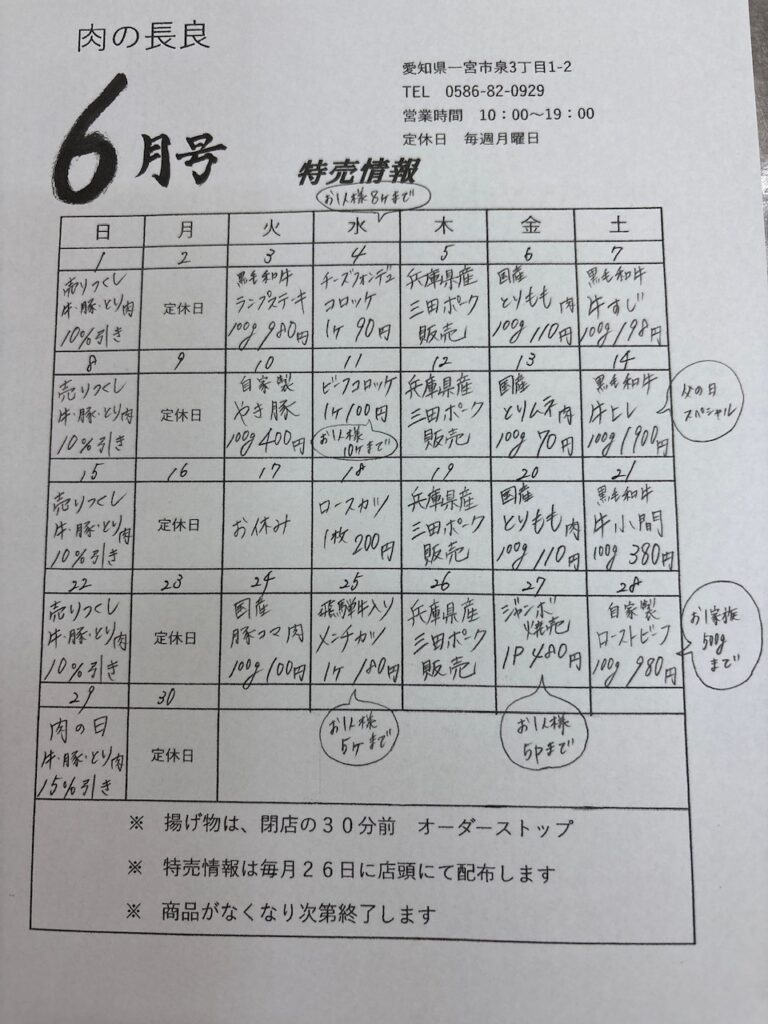 肉の長良
6月号
愛知県一宮市泉3丁目1-2
TEL 0586-82-0929
営業時間 10：00～19：00
定休日 毎週月曜日
特売情報
お1人様8ヶまで
日 月 火 水 木 金 土
1 2 3 4 5 6 7
売りつくし
牛・豚・とり肉
10%引き
定休日
黒毛和牛
ランプステーキ
100g 980円
チーズフォンデュ
コロッケ
1ヶ 90円
兵庫県産
三田ポーク
販売
国産
とりもも肉
100g 110円
黒毛和牛
牛すじ
100g 198円
8 9 10 11 12 13 14
売りつくし
牛・豚・とり肉
10%引き
定休日
自家製
やき豚
100g 400円
ビーフコロッケ
1ヶ 100円
お1人様
10ヶまで
兵庫県産
三田ポーク
販売
国産
とりムネ肉
100g 70円
黒毛和牛
牛ヒレ
100g 1900円
父の日
スペシャル
15 16 17 18 19 20 21
売りつくし
牛・豚・とり肉
10%引き
定休日
お休み
ロースカツ
1枚 200円
兵庫県産
三田ポーク
販売
国産
とりもも肉
100g 110円
黒毛和牛
牛小間
100g 380円
22 23 24 25 26 27 28
売りつくし
牛・豚・とり肉
10%引き
定休日
国産
豚コマ肉
100g 100円
飛騨牛入り
メンチカツ
1ヶ 180円
お1人様
5ヶまで
兵庫県産
三田ポーク
販売
ジャンボ
焼売
1P 480円
お1人様
5pまで
自家製
ローストビーフ
100g 980円
お1家族
500g
まで
29 30
肉の日
牛・豚・とり肉
15%引き
定休日
※ 揚げ物は、閉店の３０分前 オーダーストップ
※ 特売情報は毎月２６日に店頭にて配布します
※ 商品がなくなり次第終了します